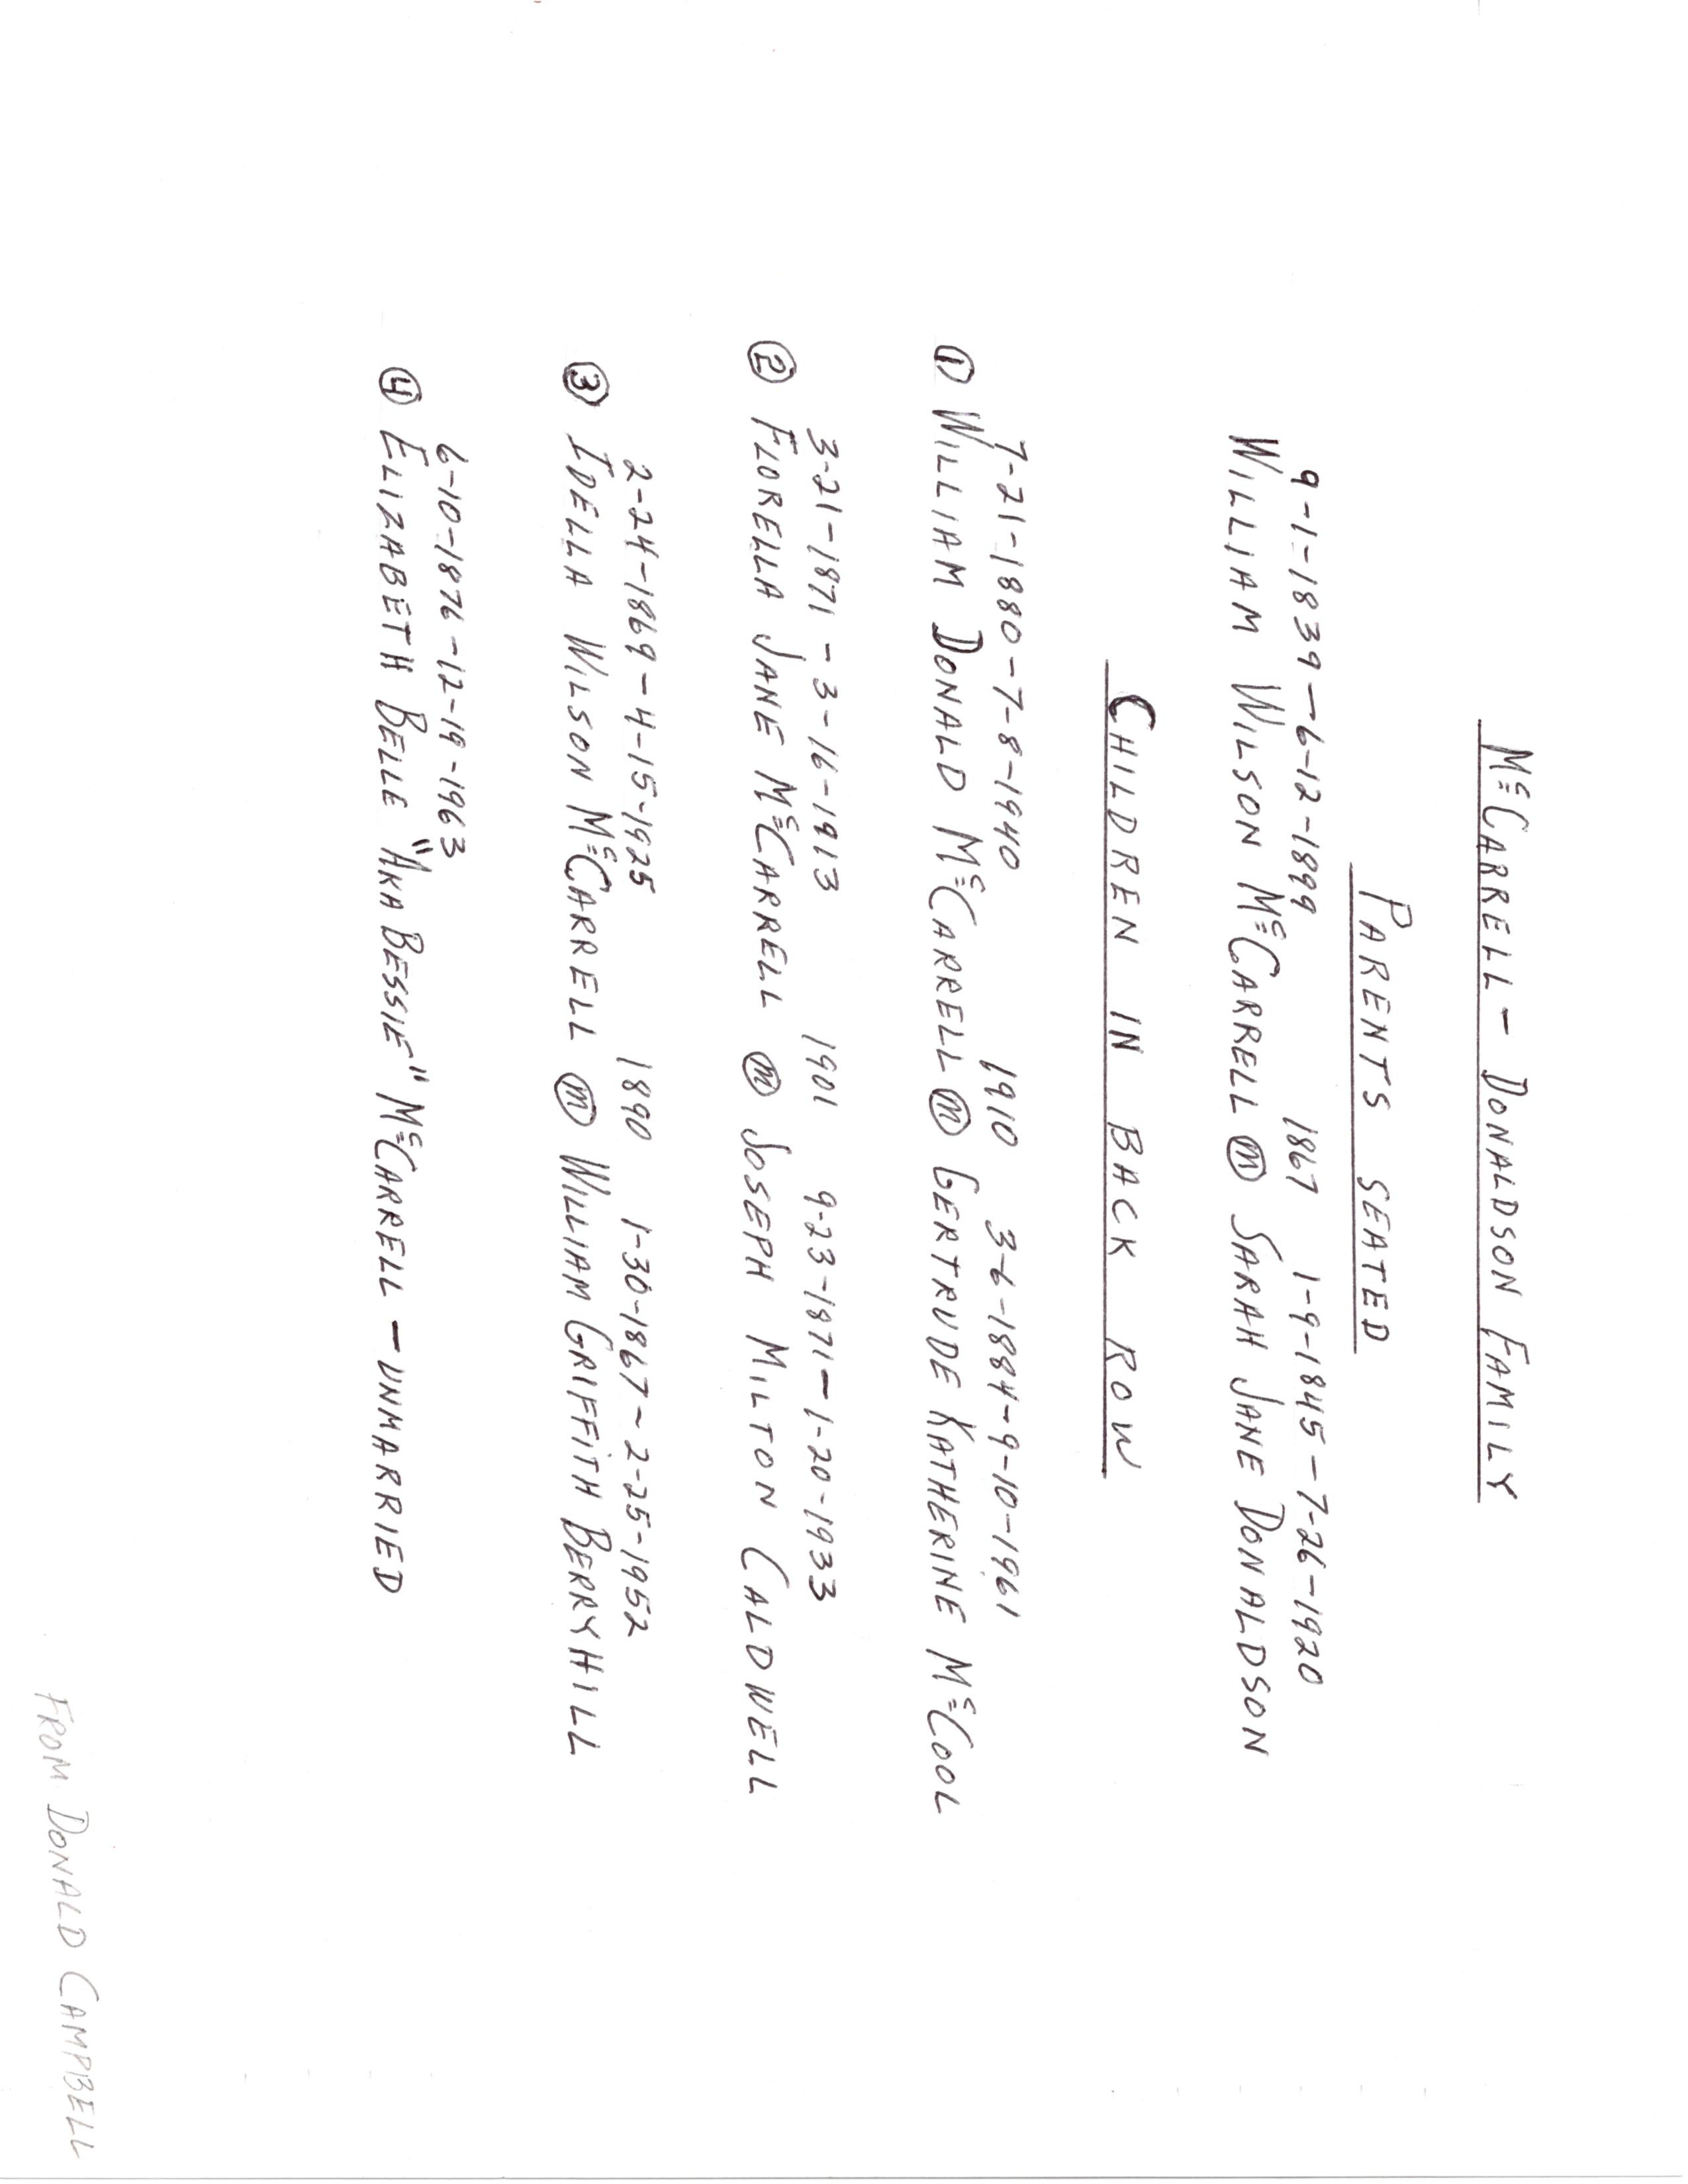 McCARRELL - DONALDSON FAMILY
PARENTS SEATED
9-1-1839-6-12-1899 1867 1-9-1845-7-26-1920
WILLIAM WILSON McCARRELL (m) SARAH JANE DONALDSON
CHILDREN IN BACK ROW
7-21-1880-7-8-1940 1910 3-6-1884-9-10-1961
① WILLIAM DONALD McCARRELL (m) GERTRUDE KATHERINE McCOOL
3-21-1871-3-16-1913 1901 9-23-1871-1-20-1933
② FLORELLA JANE McCARRELL (m) JOSEPH MILTON CALDWELL
2-24-1869-4-15-1925 1890 1-30-1867-2-25-1952
③ IDELLA WILSON McCARRELL (m) WILLIAM GRIFFITH BERRYHILL
6-10-1876-12-19-1963
④ ELIZABETH BELLE "AKA BESSIE" McCARRELL - UNMARRIED
FROM DONALD CAMPBELL